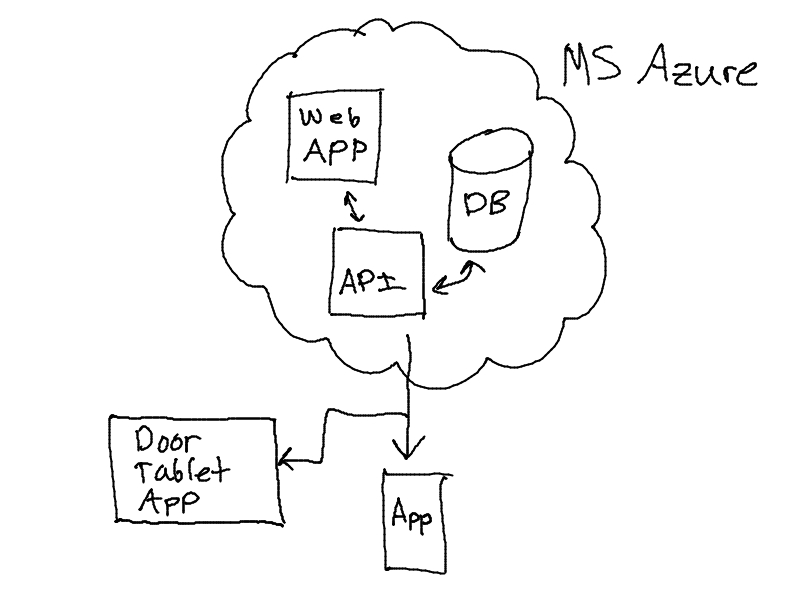 MS Azure
Web
APP
DB
API
Door
Tablet
App
App